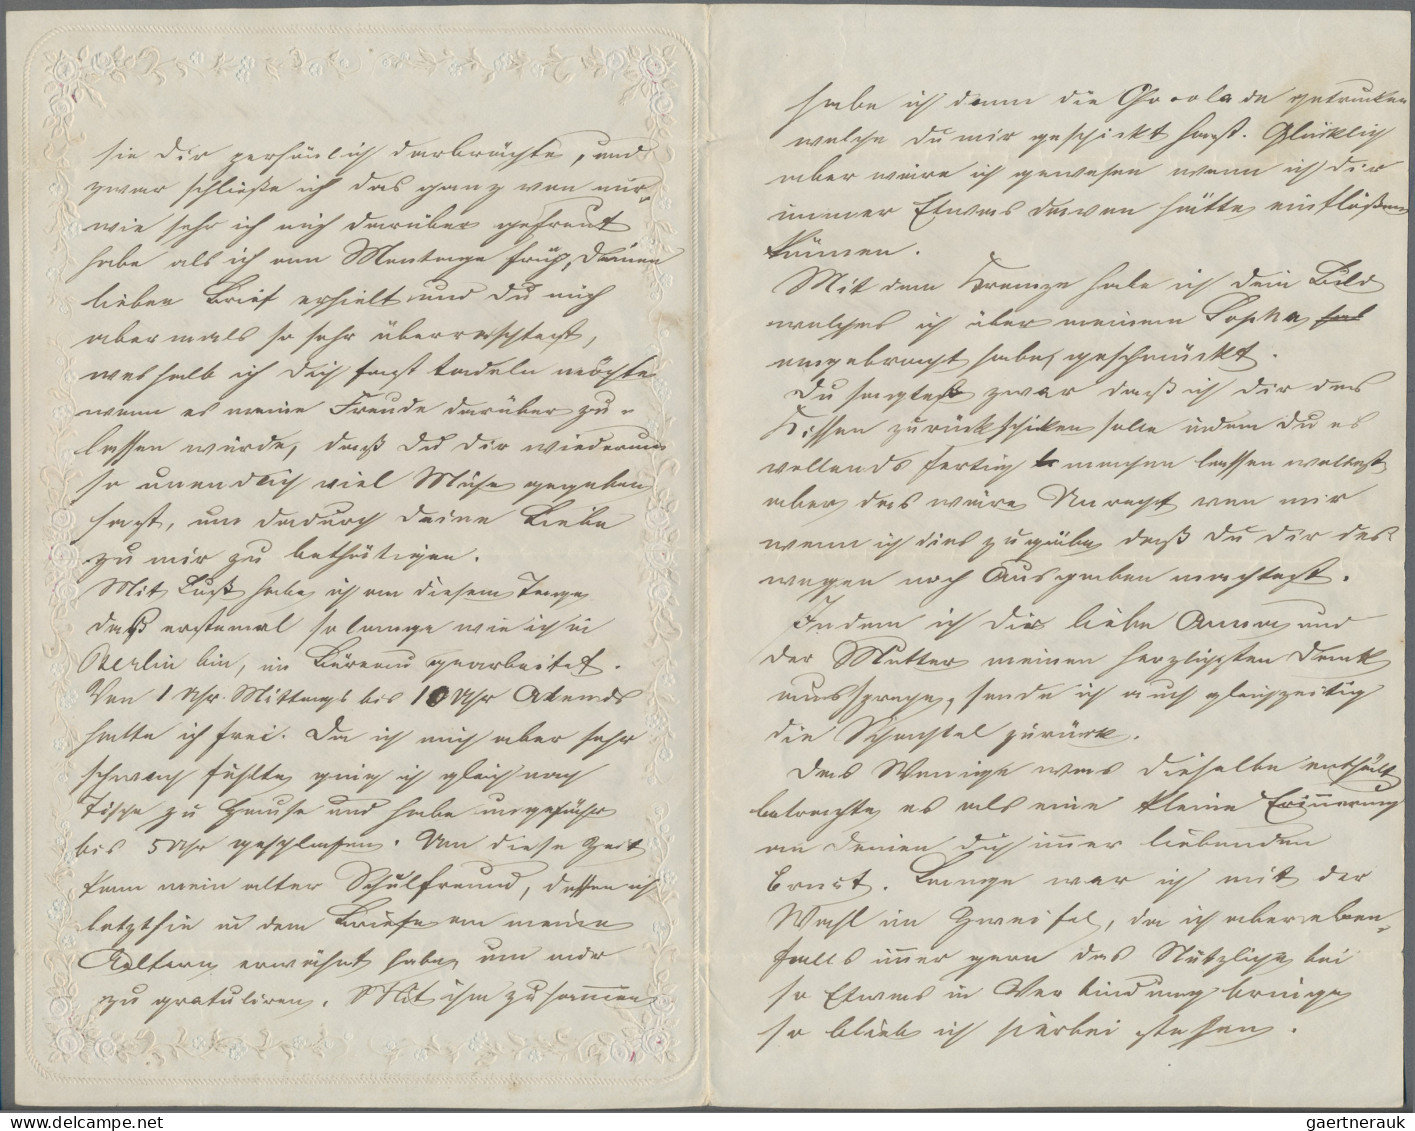 sie Dir persönlich darbrächte, und
zwar schließe ich das ganz von nur
wie sehr ich mich darüber gefreut
habe als ich am Montage früh, Deinen
lieben Brief erhielt und Du mich
abermals so sehr überraschtest,
weshalb ich Dich fast tadeln möchte
wenn es meine Freude darüber zu-
lassen würde, daß Du Dir wiederum
so unendlich viel Mühe gegeben
hast, um dadurch Deine Liebe
zu mir zu bethätigen.
Mit Lust habe ich an diesem Tage
daß erstemal so lange wie ich in
Berlin bin, im Büreau gearbeitet.
Von 1 Uhr Mittags bis 10 Uhr Abends
hatte ich frei. Da ich mich aber sehr
schwach fühlte, ging ich gleich nach
Tische zu Hause und habe ungefähr
bis 5 Uhr geschlafen. Um diese Zeit
kam mein alter Schulfreund, dessen ich
letzthin in dem Briefe an meine
Aeltern erwähnt habe, um mir
zu gratuliren. Mit ihm zusammen
habe ich dann die Chocolade getrunken
welche Du mir geschickt hast. Glücklich
aber wäre ich gewesen wenn ich Dir
immer Etwas davon hätte einflößen
können.
Mit dem Kranze habe ich dein Bild
welches ich über meinem Sopha
angebracht habe, geschmückt.
Du sagtest zwar daß ich Dir das
Kissen zurückschicken solle indem Du es
vollends fertig machen lassen wolltest
aber das wäre Unrecht von mir
wenn ich dies zugäbe, daß Du Dir des-
wegen noch Ausgaben machtest.
Indem ich Dir liebe Anna und
der Mutter meinen herzlichsten Dank
ausspreche, sende ich auch gleichzeitig
die Schachtel zurück.
Das Wenige was dieselbe enthält
betrachte es als eine kleine Erinnerung
an Deinen Dich immer liebenden
Ernst. Lange war ich mit der
Wahl im Zweifel, da ich aber eben-
falls immer gern das Nützliche bei
so Etwas in Verbindung bringe
so blieb ich hierbei stehen.
gaertnerauk